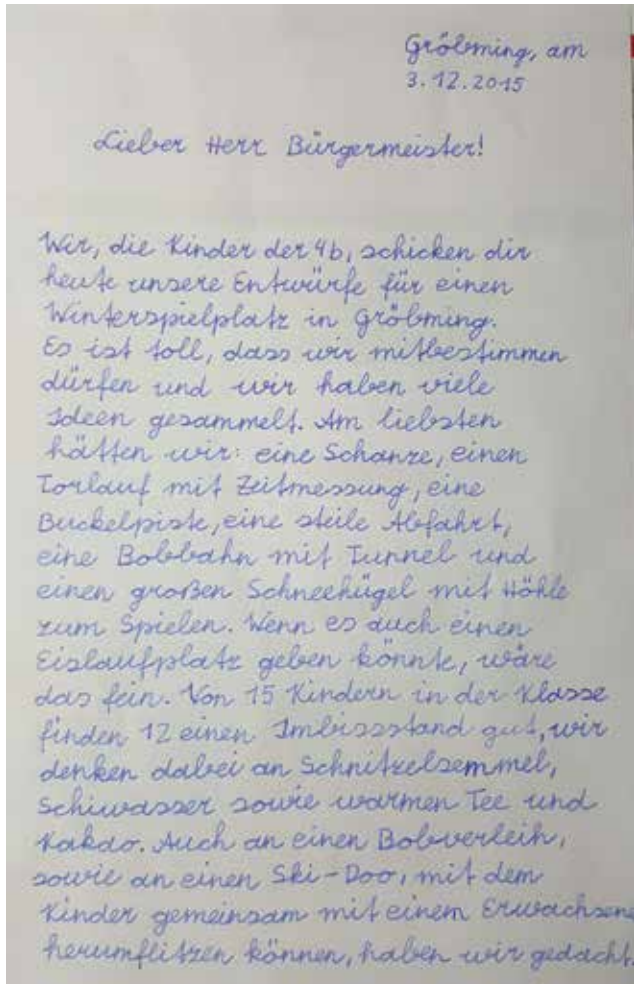 Gröbming, am
3.12.2015
Lieber Herr Bürgermeister!
Wir, die Kinder der 4b, schicken dir
heute unsere Entwürfe für einen
Winterspielplatz in Gröbming.
Es ist toll, dass wir mitbestimmen
dürfen und wir haben viele
Ideen gesammelt. Am liebsten
hätten wir: eine Schanze, einen
Torlauf mit Zeitmessung, eine
Buckelpiste, eine steile Abfahrt,
eine Bobbahn mit Tunnel und
einen großen Schneehügel mit Höhle
zum Spielen. Wenn es auch einen
Eislaufplatz geben könnte, wäre
das fein. Von 15 Kindern in der Klasse
finden 12 einen Imbissstand gut, wir
denken dabei an Schnitzelsemmel,
Schiwasser sowie warmen Tee und
Kakao. Auch an einen Bobverleih,
sowie an einen Ski-Doo, mit dem
Kinder gemeinsam mit einem Erwachsene
herumflitzen können, haben wir gedacht.